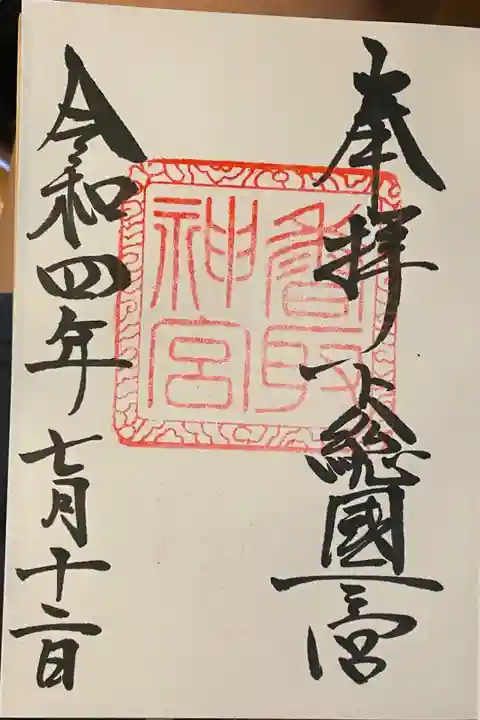 奉拝 下總國一之宮
香取神宮
令和四年七月十二日